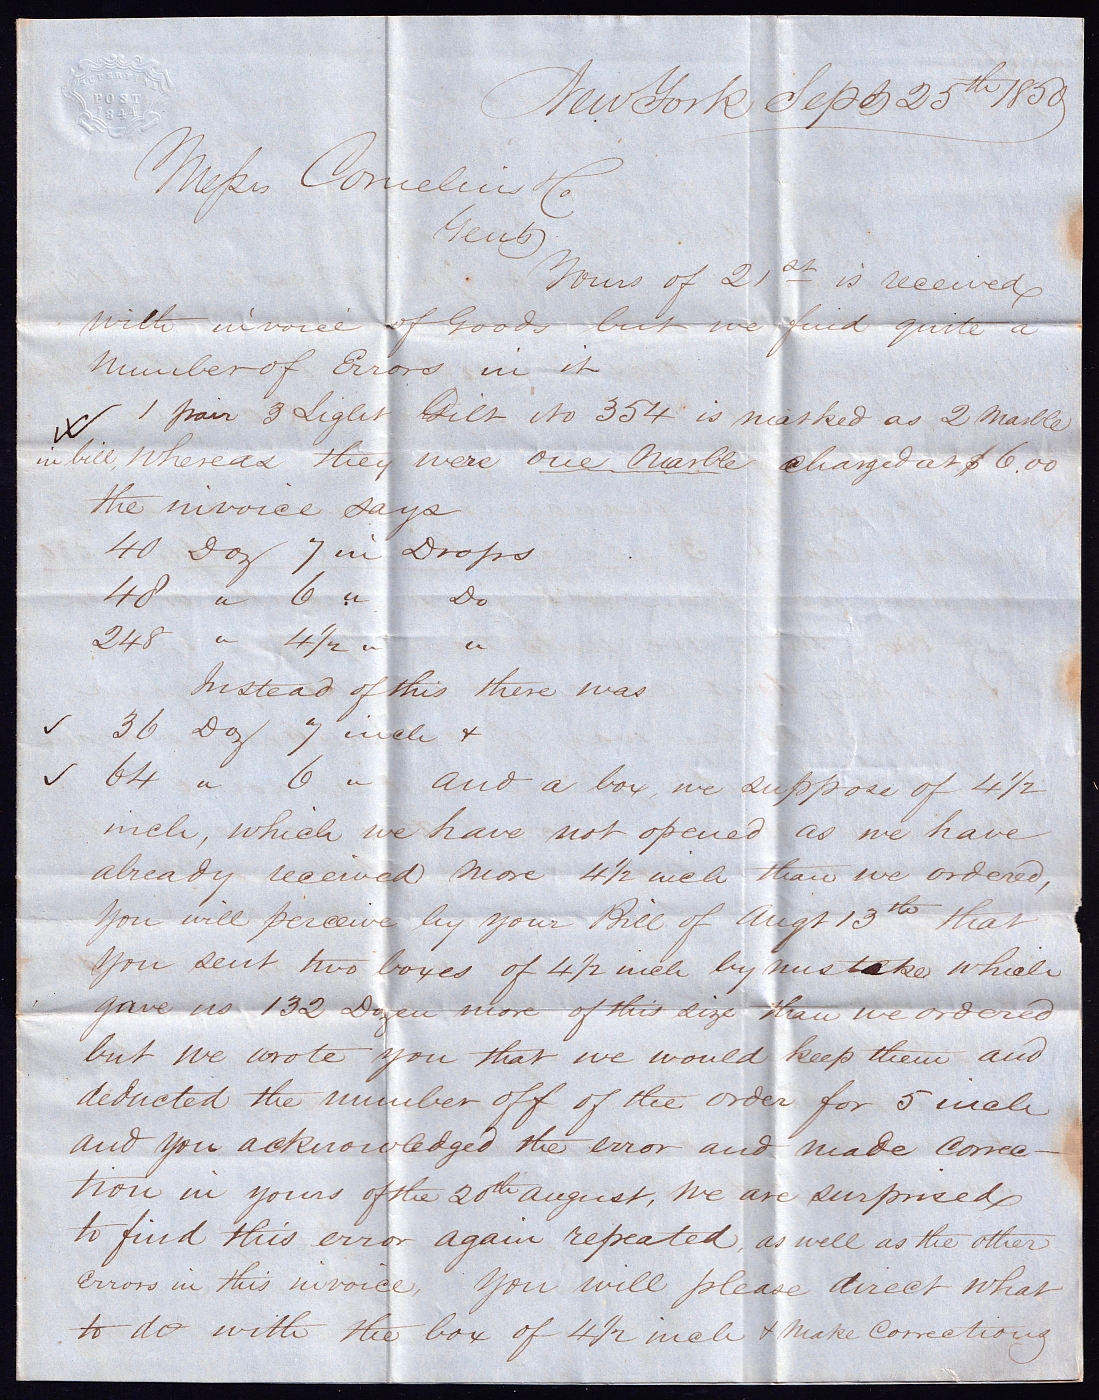 POST
1844
New York Sept 25th 1850
Messrs Cornelius & Co
Gents
Yours of 21st is received
with invoice of Goods but we find quite a
Number of Errors in it
1 pair 3 Light Gilt No 354 is marked as 2 Marble
in bill, whereas they were one Marble charged at $6.00
the invoice says
40 Doz 7 in Drops
48 " 6 " Do
248 " 4 1/2 " "
Instead of this there was
✓ 36 Doz 7 inch &
✓ 64 " 6 " and a box, we suppose of 4 1/2
inch, which we have not opened as we have
already received more 4 1/2 inch than we ordered,
You will perceive by your Bill of Augt 13th that
you sent two boxes of 4 1/2 inch by mistake which
gave us 132 Dozen more of this size than we ordered
but we wrote you that we would keep them and
deducted the number off of the order for 5 inch
and you acknowledged the error and made correc-
tion in yours of the 20th august, We are surprised
to find this error again repeated, as well as the other
Errors in this invoice, You will please direct what
to do with the box of 4 1/2 inch & Make Corrections